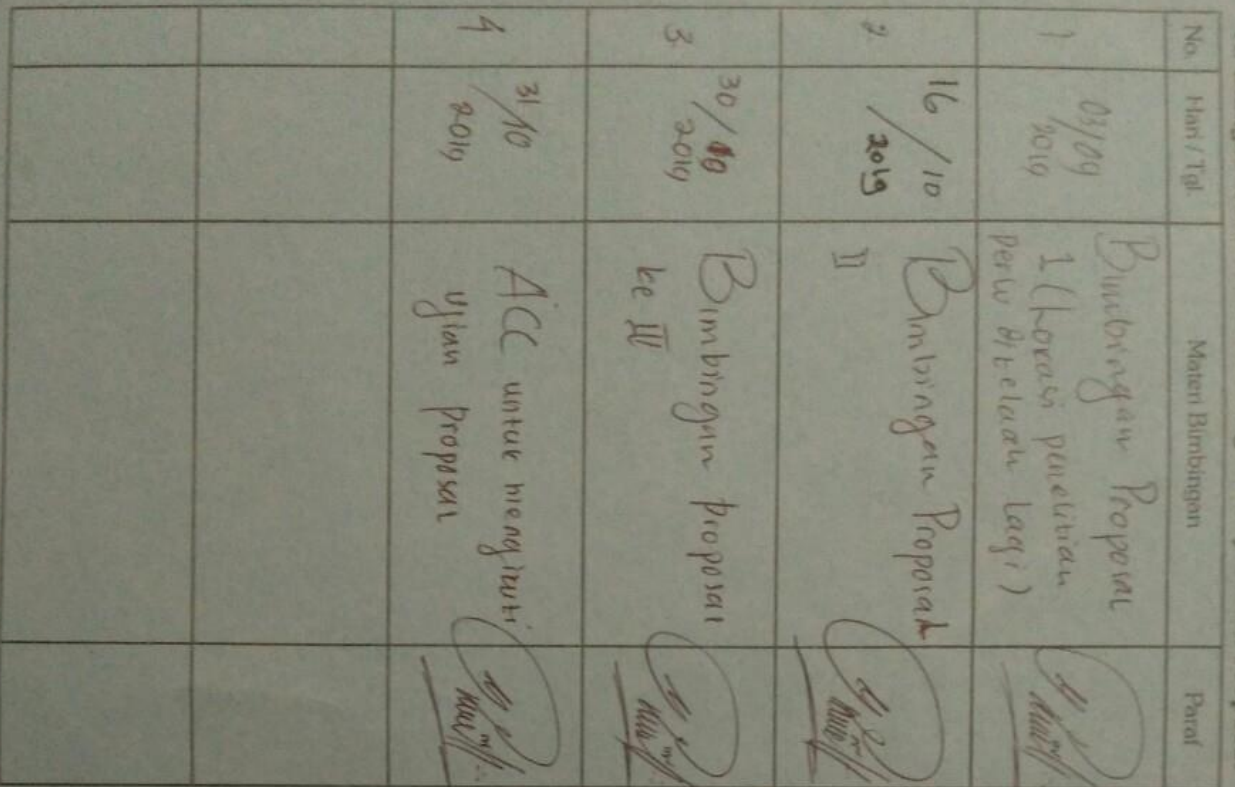 No. Hari / Tgl. Materi Bimbingan Paraf
1 03/09 2019 Bimbingan Proposal
1 (Lokasi penelitian
perlu ditelaah lagi)
2 16/10 2019 Bimbingan Proposal
II
3 30/10 2019 Bimbingan proposal
ke III
4 31/10 2019 ACC untuk mengikuti
ujian proposal